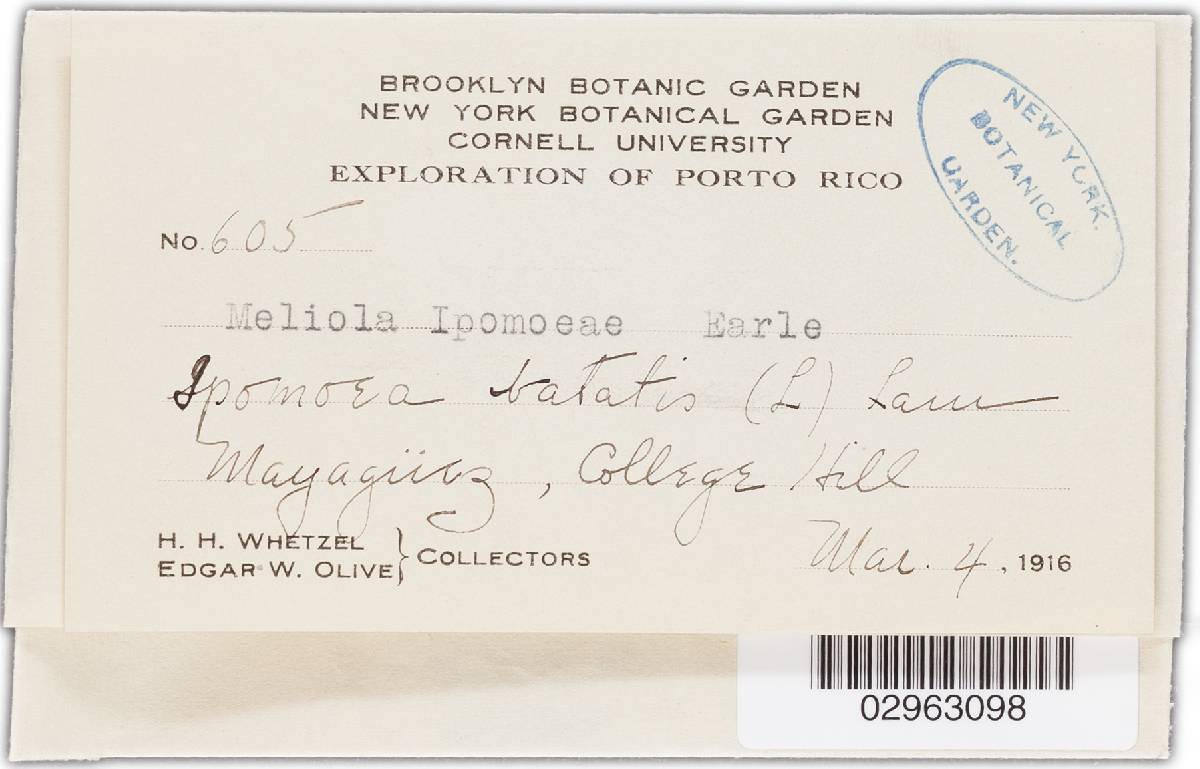 BROOKLYN BOTANIC GARDEN
NEW YORK BOTANICAL GARDEN
CORNELL UNIVERSITY
EXPLORATION OF PORTO RICO
NEW YORK.
BOTANICAL
GARDEN.
No. 605
Meliola Ipomoeae Earle
Ipomoea batatis (L) Lam
Mayagüez, College Hill
H. H. WHETZEL
EDGAR W. OLIVE } COLLECTORS
Mar. 4, 1916
02963098